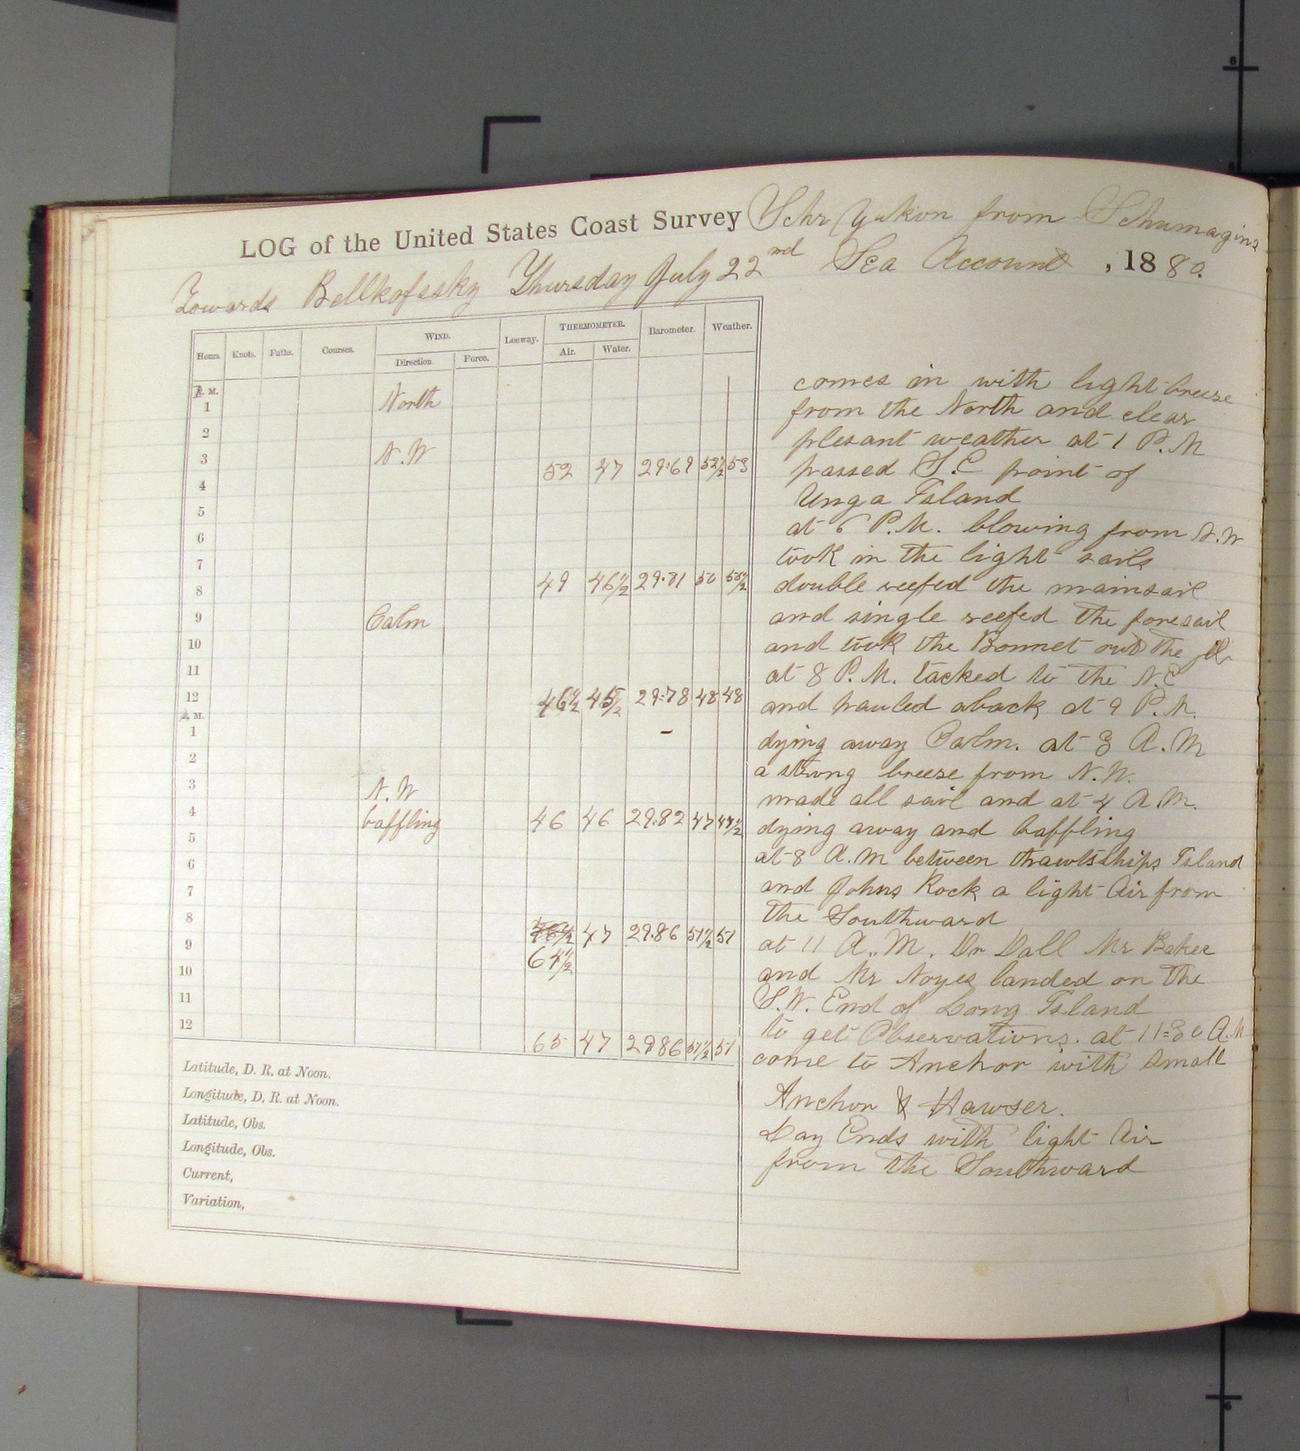 LOG of the United States Coast Survey Schr Yukon from Schumagins
Towards Bellkofssky Thursday July 22nd Sea Account, 1880
Hours. Knots. Faths. Courses. WIND. Leeway. THERMOMETER. Barometer. Weather.
Direction. Force. Air. Water.
P. M.
1 North
2
3 N.W
4 52 47 29.69 52½ 53
5
6
7
8 49 46½ 29.71 50
9 Calm
10
11
12 46½ 45½ 29.78 48 48
A. M.
1 -
2
3 N.W
4 baffling 46 46 29.82 47 47½
5
6
7
8 47 29.86 51½ 51
9 64½
10
11
12 65 47 29 86 51½ 51
Latitude, D. R. at Noon.
Longitude, D. R. at Noon.
Latitude, Obs.
Longitude, Obs.
Current,
Variation,
comes in with light breeze
from the North and clear
plesant weather at 1 P.M
passed S.E point of
Unga Island
at 6 P.M. blowing from N.W
took in the light sails
double reefed the mainsail
and single reefed the foresail
and took the Bonnet out the jib
at 8 P.M. tacked to the N.E
and hauled aback at 9 P.M.
dying away Calm. at 3 A.M
a strong breeze from N.W.
made all sail and at 4 A.M.
dying away and baffling
at 8 A.M between Island
and Johns Rock a light Air from
the Southward
at 11 A.M. Dr Dall Mr Baker
and Mr Noyes landed on the
S.W. End of Long Island
to get Observations. at 11=30 A.M
come to Anchor with small
Anchor & Hawser.
Day Ends with light Air
from the Southward